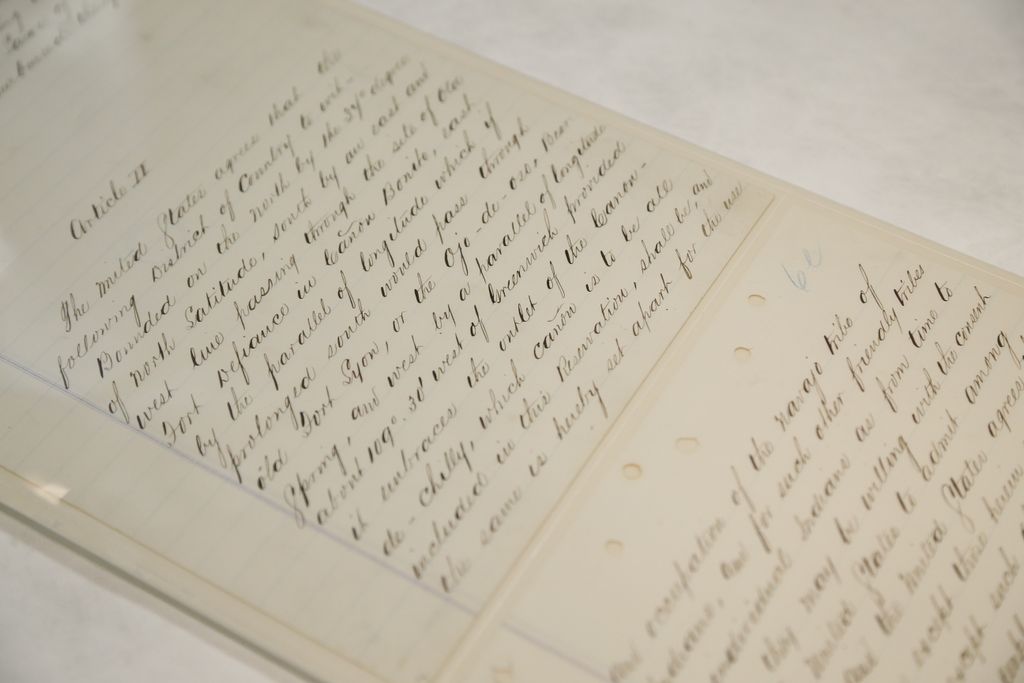 Article II
The United States agree that the
following District of Country to wit-
Bounded on the North by the 37° degree
of North Latitude, South by an east and
west line passing through the site of Old
Fort Defiance in Cañon Bonito, east
by the parallel of longitude which if
prolonged South would pass through
old Fort Lyon, or the Ojo-de-oso, Bear
Spring, and west by a parallel of longitude
about 109°.30' west of Greenwich provided
it embraces the outlet of the Canon-
de-Chilly, which cañon is to be all
included in this Reservation, shall be, and
the same is hereby set apart for the use
and occupation of the Navajo tribe of
Indians, and for such other friendly tribes
individual Indians as from time to
they may be willing with the consent
United States to admit among
and the United States agrees
these herein
such